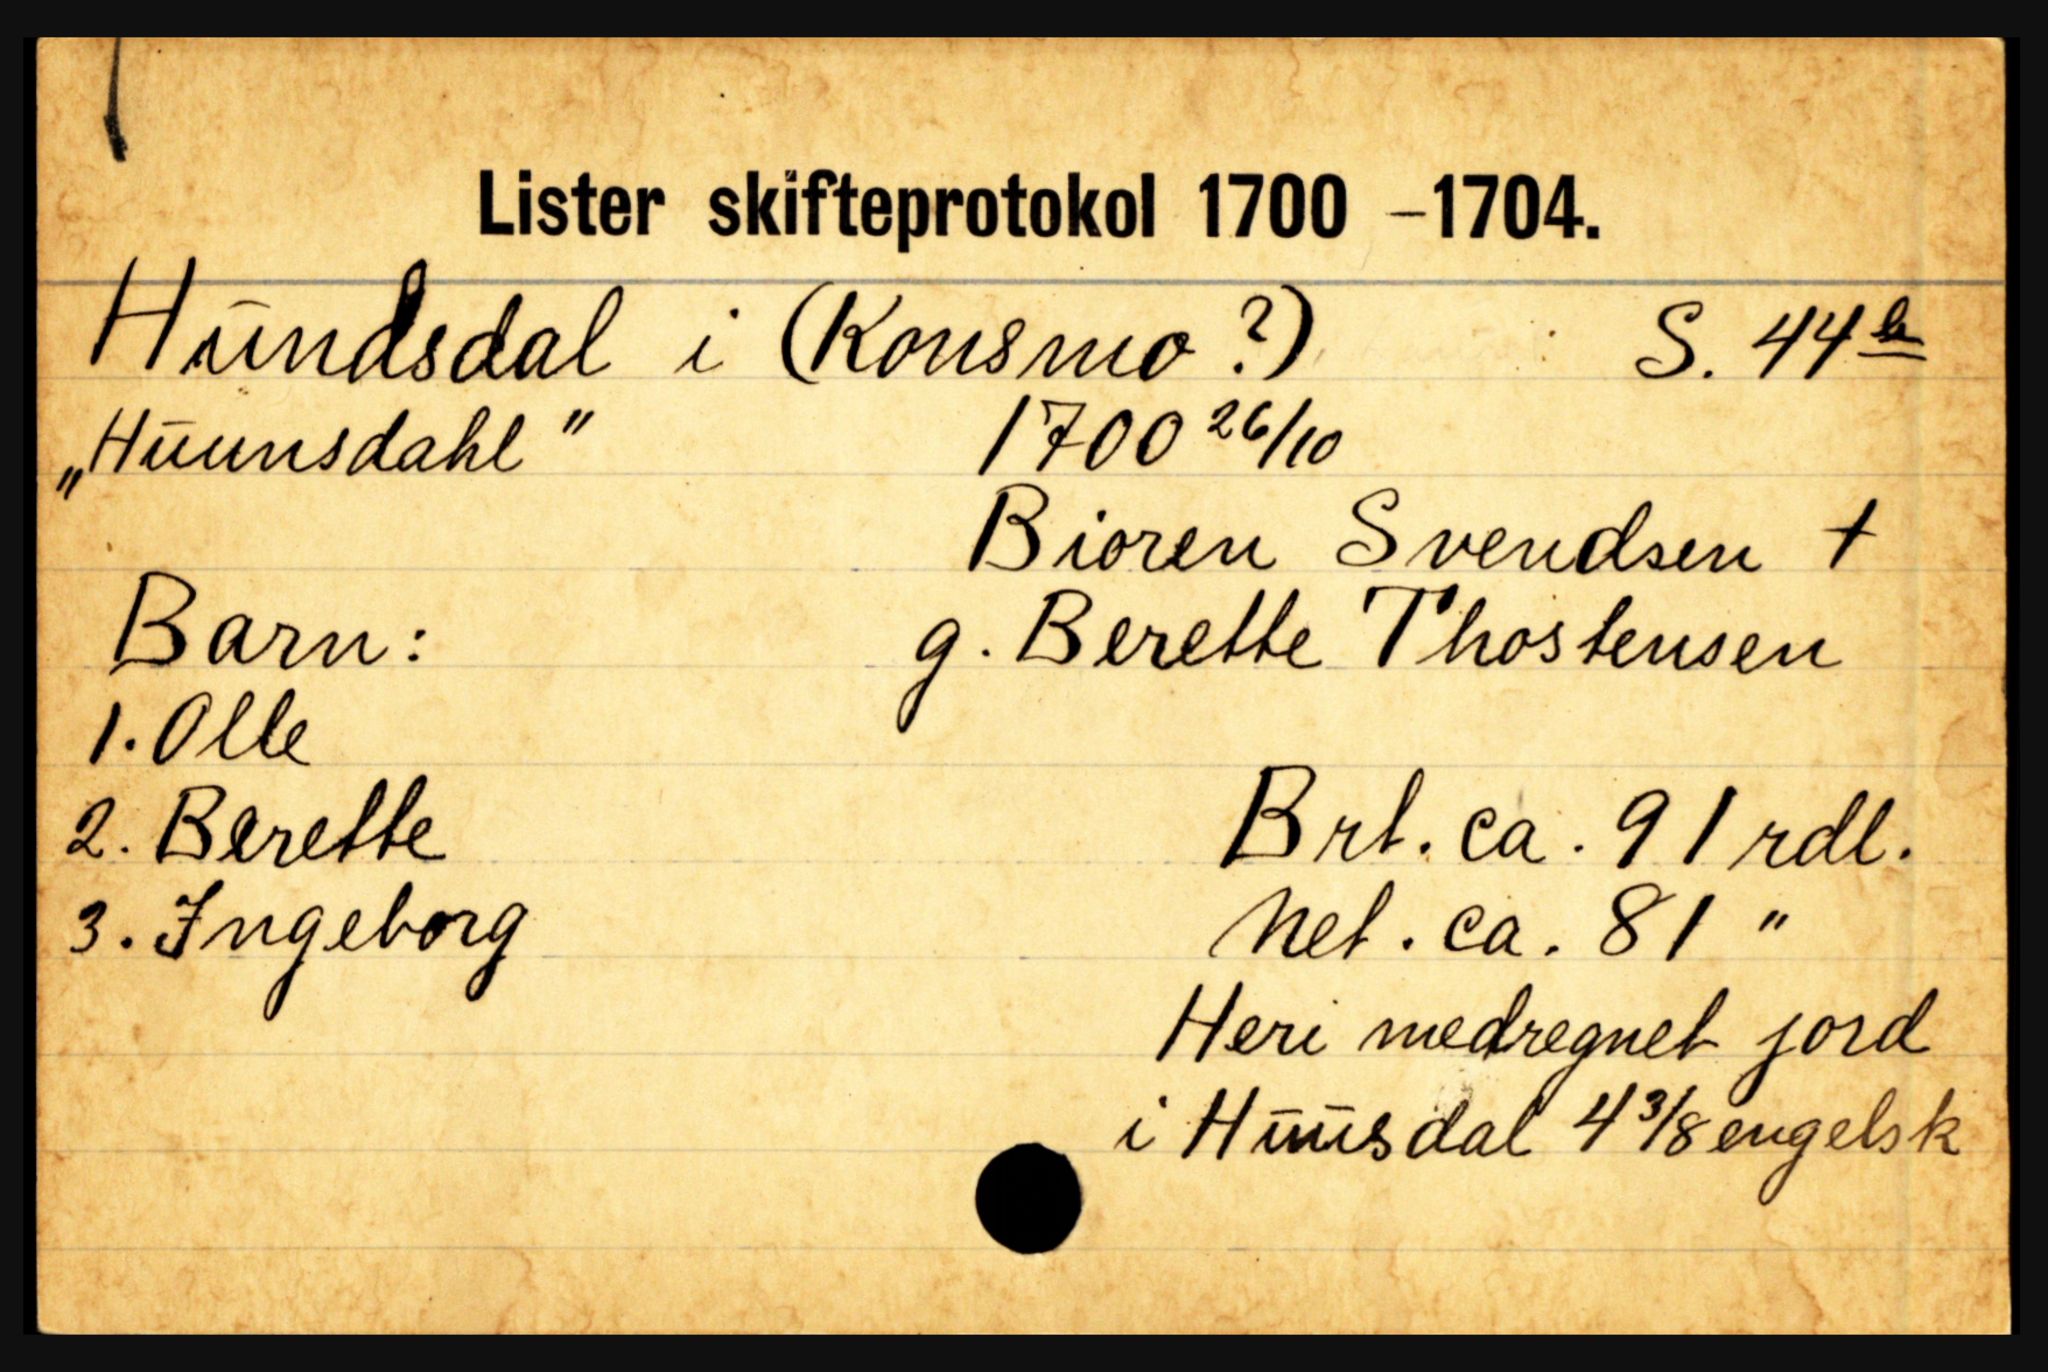 Lister skifteprotokol 1700 –1704.
Hundsdal i (Konsmo?) S. 44b
„Huunsdahl" 1700 26/10
Bioren Svendsen †
Barn: g. Berette Thostensen
1. Olle
2. Berette Brt. ca. 91 rdl.
3. Ingeborg Net. ca. 81 "
Heri medregnet jord
i Huusdal 4 3/8 engelsk